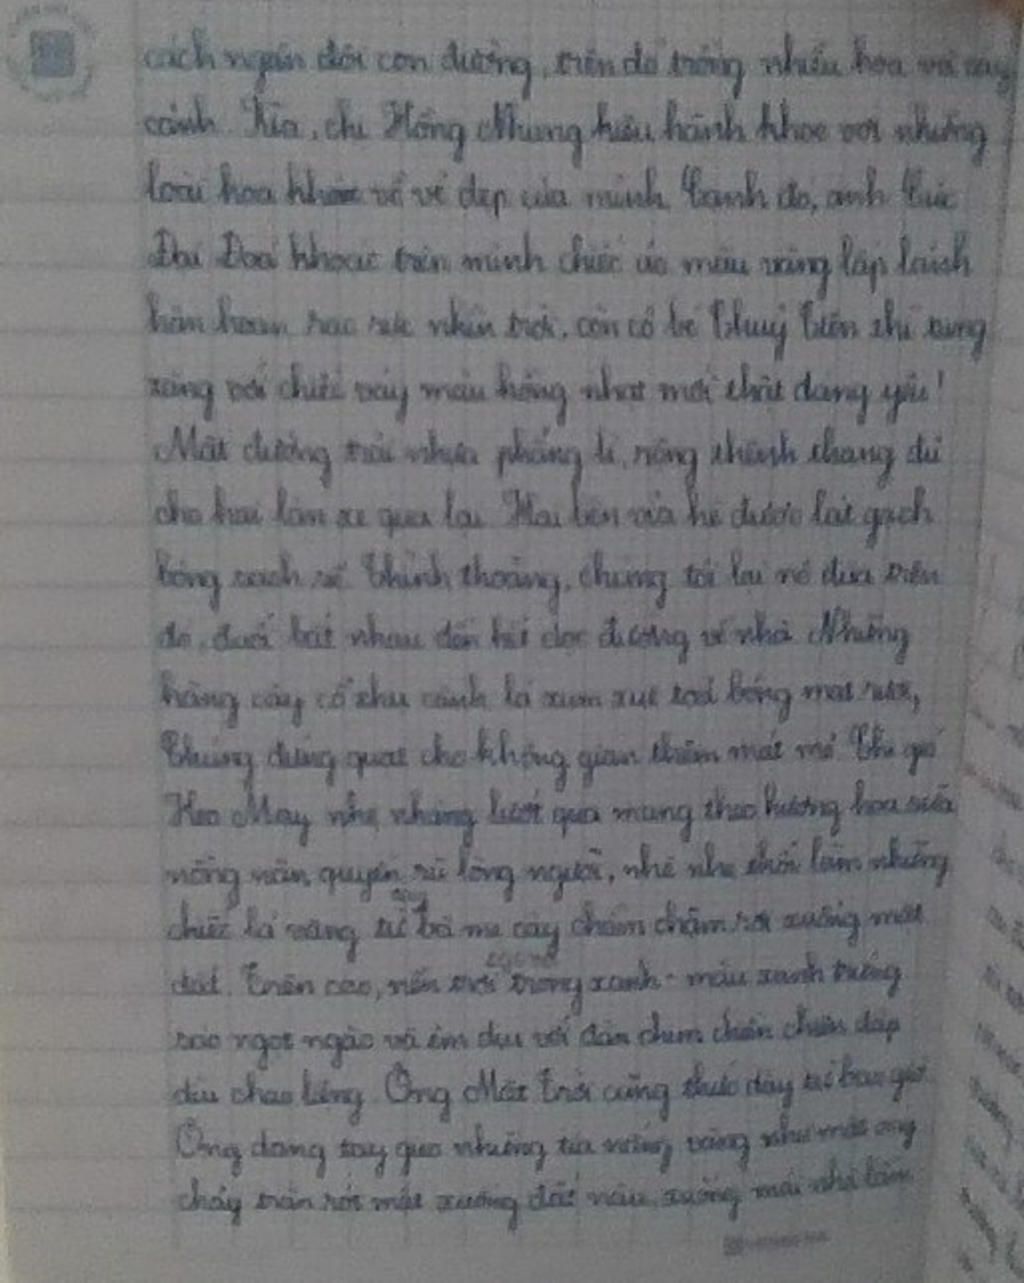 cách ngăn đôi con đường, trên đó trồng nhiều hoa và cây
cảnh. Kìa, chị Hồng Nhung kiêu hãnh khoe với những
loài hoa khác về vẻ đẹp của mình. Cạnh đó, anh Cúc
Đại Đoá khoác trên mình chiếc áo màu vàng lấp lánh
hân hoan rạo rực nhìn trời, còn cô bé Thuỷ Tiên thì xúng
xính với chiếc váy màu hồng nhạt mới thật đáng yêu!
Mặt đường trải nhựa phẳng lì, rộng thênh thang đủ
cho hai làn xe qua lại. Hai bên vỉa hè được lát gạch
bóng sạch sẽ. Thỉnh thoảng, chúng tôi lại nô đùa trên
đó, đuổi bắt nhau đến hết dọc đường về nhà. Những
hàng cây cổ thụ cành lá xum xuê toả bóng mát rượi,
chúng dùng quạt cho không gian thêm mát mẻ. Chị gió
Heo May nhẹ nhàng lướt qua mang theo hương hoa sữa
nồng nàn quyến rũ lòng người, nhè nhẹ thổi làm những
chiếc lá vàng từ bà mẹ cây chầm chậm rơi xuống mặt
đất. Trên cao, nền trời trong xanh - màu xanh trong
ngọt ngào và êm dịu với đàn chim chiền chiện dập
dìu chao liệng. Ông Mặt Trời cũng thức dậy từ bao giờ.
Ông đang tay gieo những tia nắng vàng như mật ong
chảy tràn rót mật xuống đất nâu, xuống mái nhà